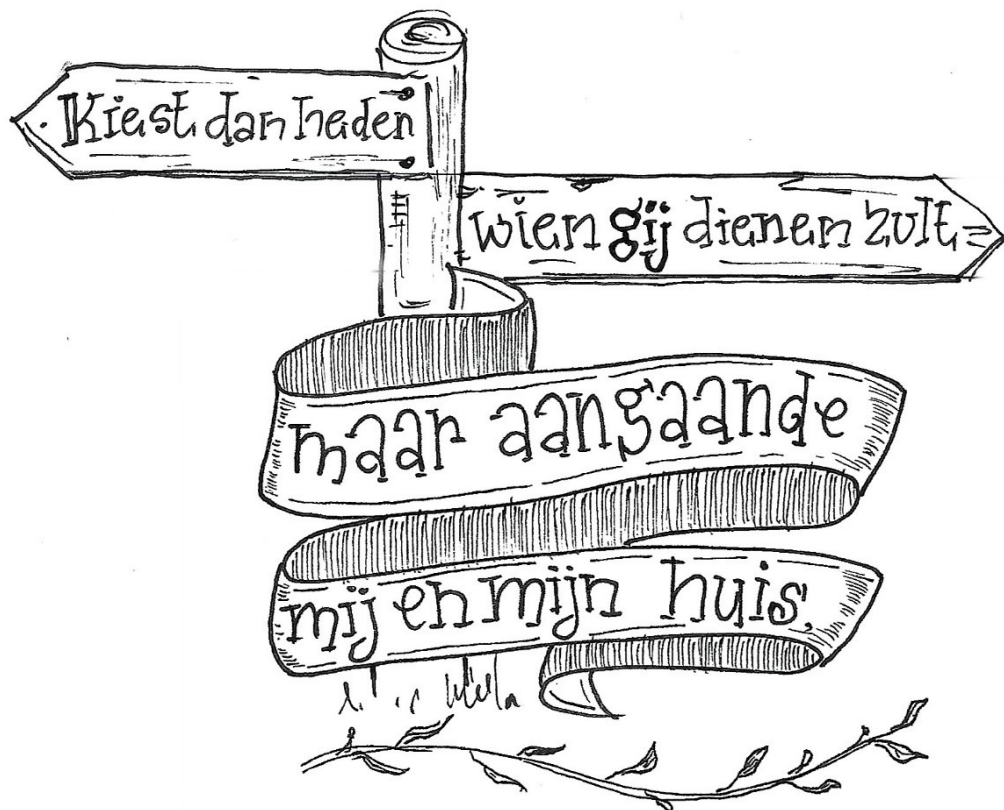 Kiest dan heden
wien gij dienen zult
maar aangaande
mij en mijn huis,